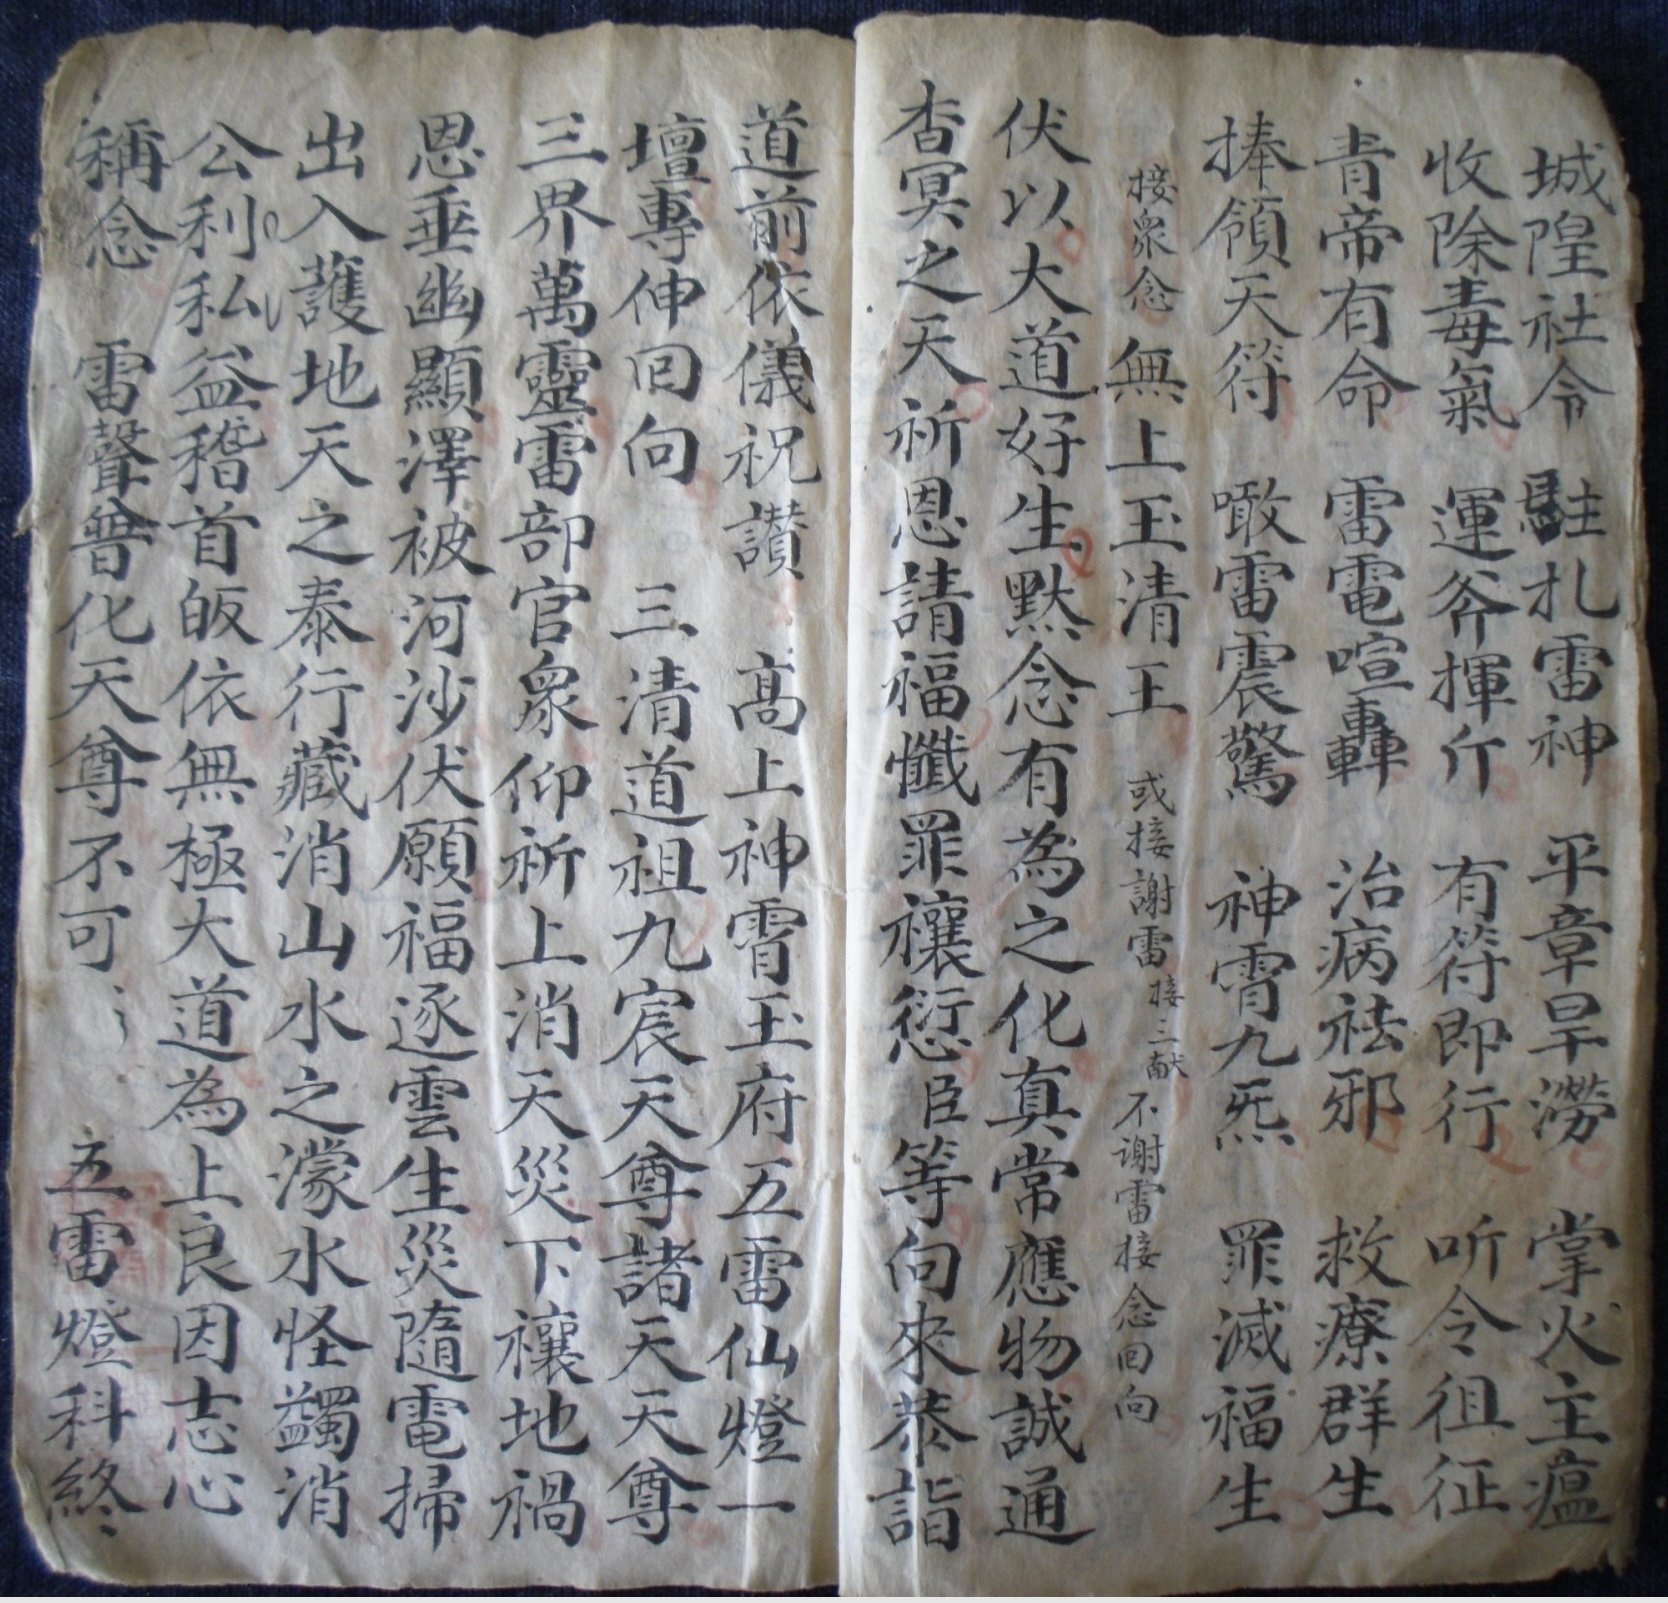 城隍社令　駐札雷神　平章旱澇　掌火主瘟
收除毒氣　運斧揮斤　有符即行　听令徂征
青帝有命　雷電喧轟　治病祛邪　救療群生
捧領天符　噉雷震驚　神霄九炁　罪滅福生
接衆念　無上玉清王　或接謝雷接三献　不謝雷接念回向
伏以大道好生默念有為之化真常應物誠通
杳冥之天祈恩請福懺罪禳愆臣等向來恭詣
道前依儀祝讃　髙上神霄玉府五雷仙燈一
壇專伸回向　三清道祖九宸天尊諸天天尊
三界萬靈雷部官衆仰祈上消天災下禳地禍
恩垂幽顯澤被河沙伏願福逐雲生災隨電掃
出入護地天之泰行藏消山水之濛水怪蠲消
公利私益稽首皈依無極大道為上良因志心
稱念　雷聲普化天尊不可　五雷燈科終